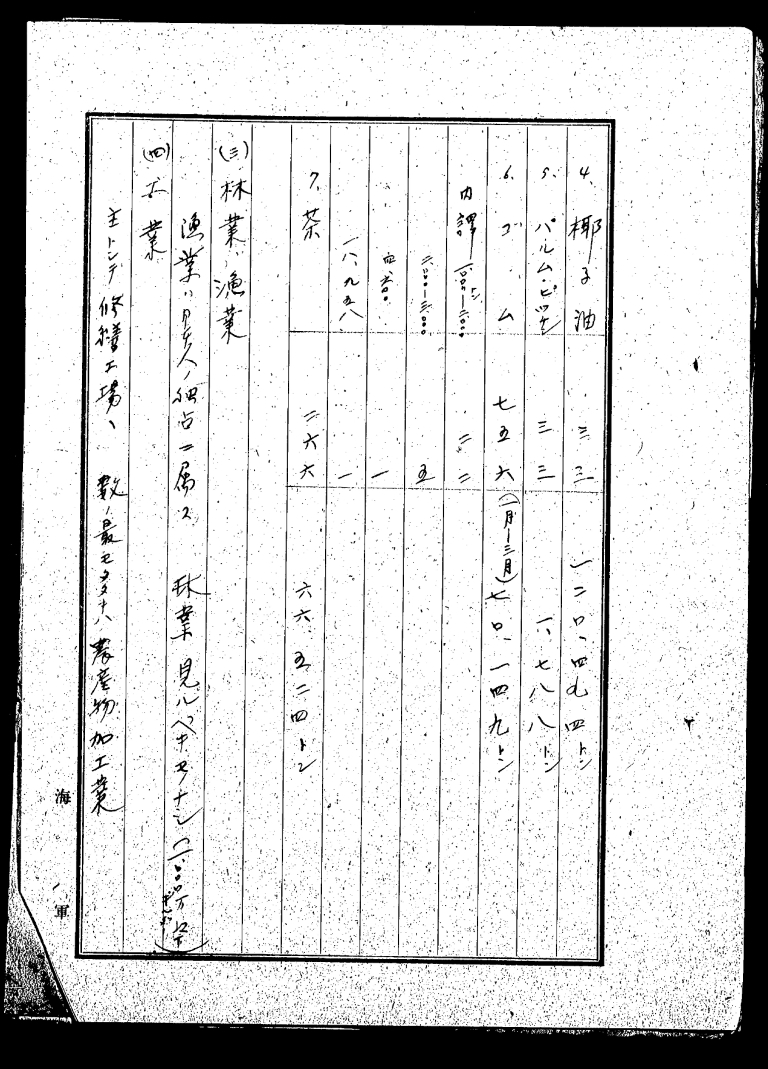 4. 椰子油 三三 一二〇、四九四トン
5. パルム・ピッケン 三三 一、七八八トン
6. ゴム 七五六(一月―三月)七〇、一四九トン
内譯 一〇〇〇トン―二〇〇〇 二二
二〇〇〇―三〇〇〇 五
四、六〇〇 一
一八、九五八 一
7. 茶 二六六 六六、五二四トン
(三) 林業、漁業
漁業ハ日本人ノ独占ニ属ス 林業見ルベキモノナシ
(四) 工業
主トシテ修繕工場、数ノ最モ多キハ農産物加工業
海軍